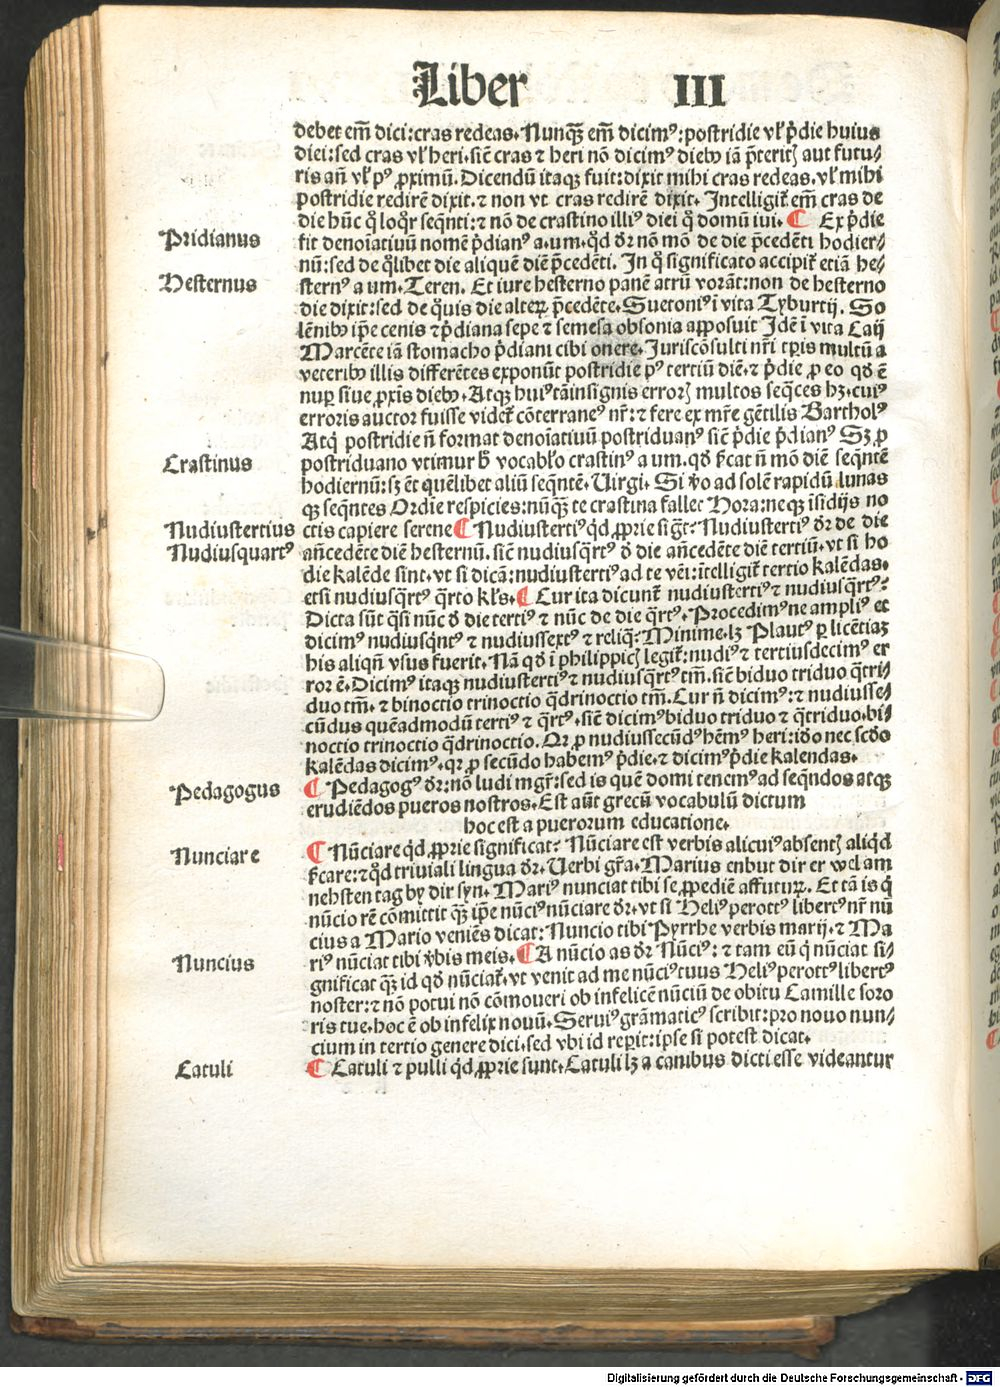 Liber III
debet em̄ dici:cras redeas.Nunq̄ꝫ em̄ dicimꝰ:postridie vl̓ p̓die huius
diei:sed cras vl̓ heri.sic̄ cras ⁊ heri nō dicimꝰ diebꝫ iā p̄teritꝭ aut futu/
ris an̄ vl̓ pꝰ ꝓximū.Dicendū itaqꝫ fuit:dixit mihi cras redeas.vl̓ mihi
postridie redirē dixit.⁊ non vt cras redirē dixit.Intelligit̄ em̄ cras de
die hūc q̓ loqr̄ seqn̄ti:⁊ nō de crastino illiꝰ diei q̓ domū iui.¶ Ex p̓die
Pridianus
fit denoīatiuū nomē p̓dianꝰ a.um.qd̓ dr̄ nō mō de die p̄cedēti hodier/
nū:sed de q̓libet die aliquē diē p̄cedēti. In q̓ significato accipit̄ etiā he/
Hesternus
sternꝰ a um.Teren. Et iure hesterno panē atrū vorāt:non de hesterno
die dixit:sed de q̓uis die alteꝝ p̄cedēte.Suetoniꝰ ī vita Tyburtij. So
lēnibꝫ ip̄e cenis ⁊ p̓diana sepe ⁊ semesa obsonia apposuit Idē ī vita Caij
Marcēte iā stomacho p̓diani cibi onere.Juriscōsulti nr̄i tꝑis multū a
veteribꝫ illis differētes exponūt postridie pꝰ tertiū diē.⁊ p̓die ꝓ eo qd̓ ē
nuꝑ siue ꝓxīs diebꝫ.Atqꝫ huiꝰ tā insignis erroꝝ multos seqn̄ces hꝫ.cuiꝰ
erroris auctor fuisse videt̄ cōterraneꝰ nr̄:⁊ fere ex mr̄e gētilis Bartholꝰ
Atq̓ postridie n̄ format denoīatiuū postriduanꝰ sic̄ p̓die p̓dianꝰ Sꝫ ꝓ
Crastinus
postriduano vtimur b̓ vocabl̓o crastinꝰ a um.qd̓ s̓cat n̄ mō diē seqn̄tē
hodiernū:sꝫ ⁊ quēlibet aliū seqn̄tē.Uirgi. Si v̓o ad solē rapidū lunas
qꝫ seqn̄tes Ordie respicies:nūq̄ꝫ te crastina fallet Hora:neqꝫ īsidijs no
Nudiustertius
ctis capiere serene¶ Nudiustertiꝰ qd̓ ꝓprie sig̓t? Nudiustertiꝰ dr̄ de die
Nudiusquartꝰ
an̄cedēte diē hesternū.sic̄ nudiusq̓rtꝰ d̓ die an̄cedēte diē tertiū.vt si ho
die kalēde sint.vt si dicā:nudiustertiꝰ ad te vēi:ītelligit̄ tertio kalēdas.
etsi nudiusq̓rtꝰ q̓rto kl̓s.¶ Cur ita dicunt̄ nudiustertiꝰ ⁊ nudiusq̓rtꝰ?
Dicta sūt qͣsi nūc d̓ die tertiꝰ ⁊ nūc de die q̓rtꝰ.Procedimꝰne ampliꝰ et
dicimꝰ nudiusq̓ntꝰ ⁊ nudiussextꝰ ⁊ reliq̓? Minime.lꝫ Plautꝰ ꝑ licētiaꝫ
his aliqn̄ vsus fuerit.Nā qd̓ ī philippicꝭ legit̄:nudiꝰ ⁊ tertiusdecimꝰ er
ror ē.Dicimꝰ itaqꝫ nudiustertiꝰ ⁊ nudiusq̓rtꝰ tm̄.sic̄ biduo triduo q̓tri/
duo tm̄.⁊ binoctio trinoctio q̓drinoctio tm̄.Cur n̄ dicimꝰ:⁊ nudiusse/
cūdus quēadmodū tertiꝰ ⁊ q̓rtꝰ.sic̄ dicimꝰ biduo triduo ⁊ q̓triduo.bi/
noctio trinoctio q̓drinoctio.Qꝛ ꝓ nudiussecūdꝰ hēmꝰ heri:id̓o nec scd̓o
kalēdas dicimꝰ.qꝛ ꝓ secūdo habemꝰ p̓die.⁊ dicimꝰ p̓die kalendas.
Pedagogus
¶ Pedagogꝰ dr̄:nō ludi mgr̄:sed is quē domi tenemꝰ ad seqn̄dos atqꝫ
erudiēdos pueros nostros.Est aūt grecū vocabulū dictum
hoc est a puerorum educatione.
Nunciare
¶ Nūciare qd̓ ꝓprie significat? Nūciare est verbis alicuiꝰ absentꝭ aliqd̓
s̓care:⁊ qd̓ triuiali lingua dr̄.Uerbi gr̄a.Marius enbut dir er wel am
nehsten tag by dir syn.Mariꝰ nunciat tibi se ꝓpediē affuturꝝ. Et tā is q̓
nūcio rē cōmittit qꝫ ip̄e nūciꝰ nūciare dr̄.vt si Heliꝰ perottꝰ libertꝰ nr̄ nū
cius a Mario veniēs dicat:Nuncio tibi Pyrrhe verbis marij.⁊ Ma
riꝰ nūciat tibi v̓bis meis.¶ A nūcio as dr̄ Nūciꝰ:⁊ tam eū q̓ nūciat si/
Nuncius
gnificat qꝫ id qd̓ nūciat̄.vt venit ad me nūciꝰ tuus Heliꝰ perottꝰ libertꝰ
noster:⁊ nō potui nō cōmoueri ob infelicē nūciū de obitu Camille soro
ris tue.hoc ē ob infelix nouū.Seruiꝰ grāmaticꝰ scribit:pro nouo nun/
cium in tertio genere dici.sed vbi id reꝑit:ipse si potest dicat.
Catuli
¶ Catuli ⁊ pulli qd̓ ꝓprie sunt.Catuli lꝫ a canibus dicti esse videantur
Digitalisierung gefördert durch die Deutsche Forschungsgemeinschaft - DFG